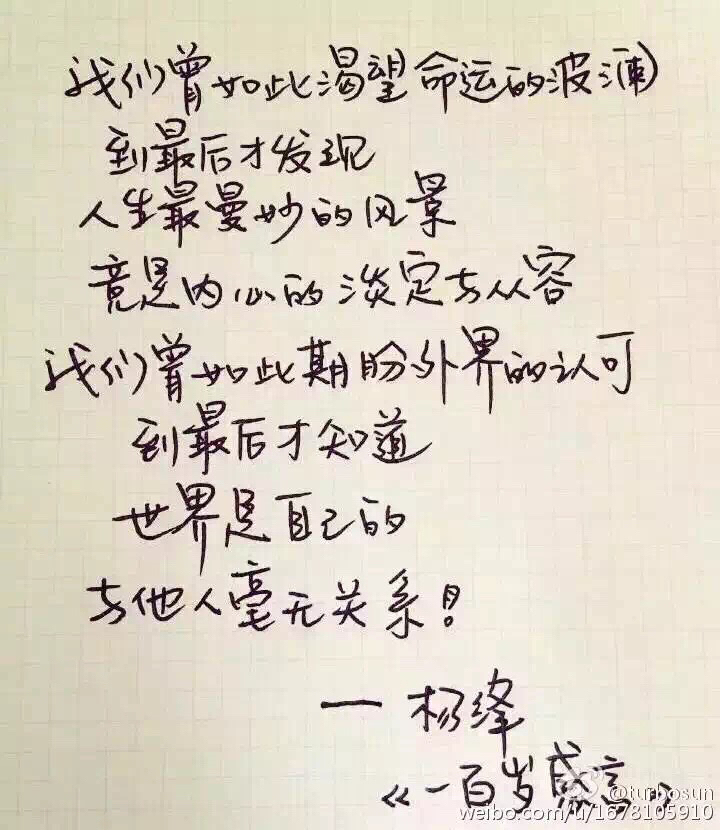 我们曾如此渴望命运的波澜
到最后才发现
人生最曼妙的风景
竟是内心的淡定与从容
我们曾如此期盼外界的认可
到最后才知道
世界是自己的
与他人毫无关系!
— 杨绛
《一百岁感言》
@turbosun
weibo.com/u/1678105910